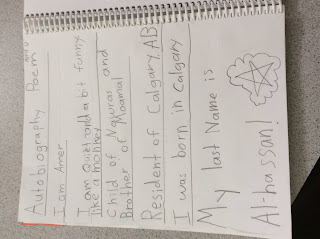 Autobiography Poem
I am Amer
I am Quiet and a bit funny
like a monkey
Child of and
Brother of Moamal
Resident of Calgary, AB
I was born in calgary
My last Name is
Al-hassan!